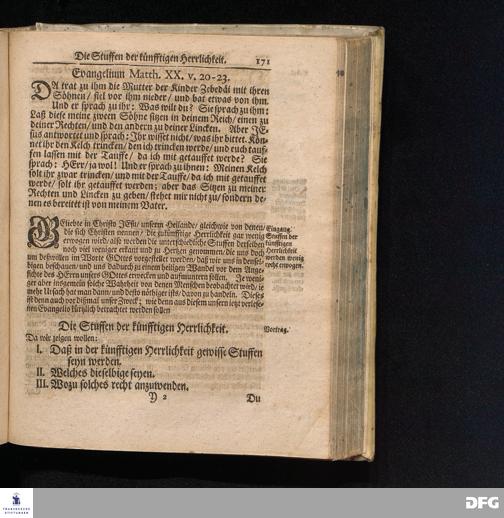 Die Stuffen der künfftigen Herrlichkeit. 171
Evangelium Matth. XX. v. 20-23.
DA trat zu ihm die Mutter der Kinder Zebedäi mit ihren
Söhnen/ fiel vor ihm nieder/ und bat etwas von ihm.
Und er sprach zu ihr: Was wilt du? Sie sprach zu ihm:
Laß diese meine zween Söhne sitzen in deinem Reich/ einen zu
deiner Rechten/ und den andern zu deiner Lincken. Aber JE-
sus antwortet und sprach: Ihr wisset nicht/ was ihr bittet. Kön-
net ihr den Kelch trincken/ den ich trincken werde/ und euch tauf-
fen lassen mit der Tauffe/ da ich mit getauffet werde? Sie
sprach: HErr/ ja wol! Und er sprach zu ihnen: Meinen Kelch
solt ihr zwar trincken/ und mit der Tauffe/ da ich mit getauffet
werde/ solt ihr getauffet werden; aber das Sitzen zu meiner
Rechten und Lincken zu geben/ stehet mir nicht zu/ sondern de-
nen es bereitet ist von meinem Vater.
GEliebte in Christo JEsu/ unserm Heilande/ gleichwie von denen/
die sich Christen nennen/ die zukünfftige Herrlichkeit gar wenig
erwogen wird/ also werden die unterschiedliche Stuffen derselben
noch viel weniger erkant und zu Hertzen genommen/ die uns doch
um deßwillen im Worte GOttes vorgestellet werden/ daß wir uns in densel-
bigen beschauen/ und uns dadurch zu einem heiligen Wandel vor dem Ange-
sichte des HErrn unsers GOttes erwecken und aufmuntern sollen. Je weni-
ger aber insgemein solche Wahrheit von denen Menschen beobachtet wird/ je
mehr Ursach hat man dann/ und desto nöthiger ists/ davon zu handeln. Dieses
ist denn auch vor dismal unser Zweck; wie denn aus diesem unsern jetzt verlese-
nen Evangelio kürtzlich betrachtet werden sollen
Eingang.
Stuffen der
künfftigen
Herrlichkeit
werden wenig
recht erwogen.
Die Stuffen der künfftigen Herrlichkeit.
Vortrag.
Da wir zeigen wollen:
I. Daß in der künfftigen Herrlichkeit gewisse Stuffen
seyn werden.
II. Welches dieselbige seyen.
III. Wozu solches recht anzuwenden.
Y 2 Du
FRANCKESCHE
STIFTUNGEN
DFG